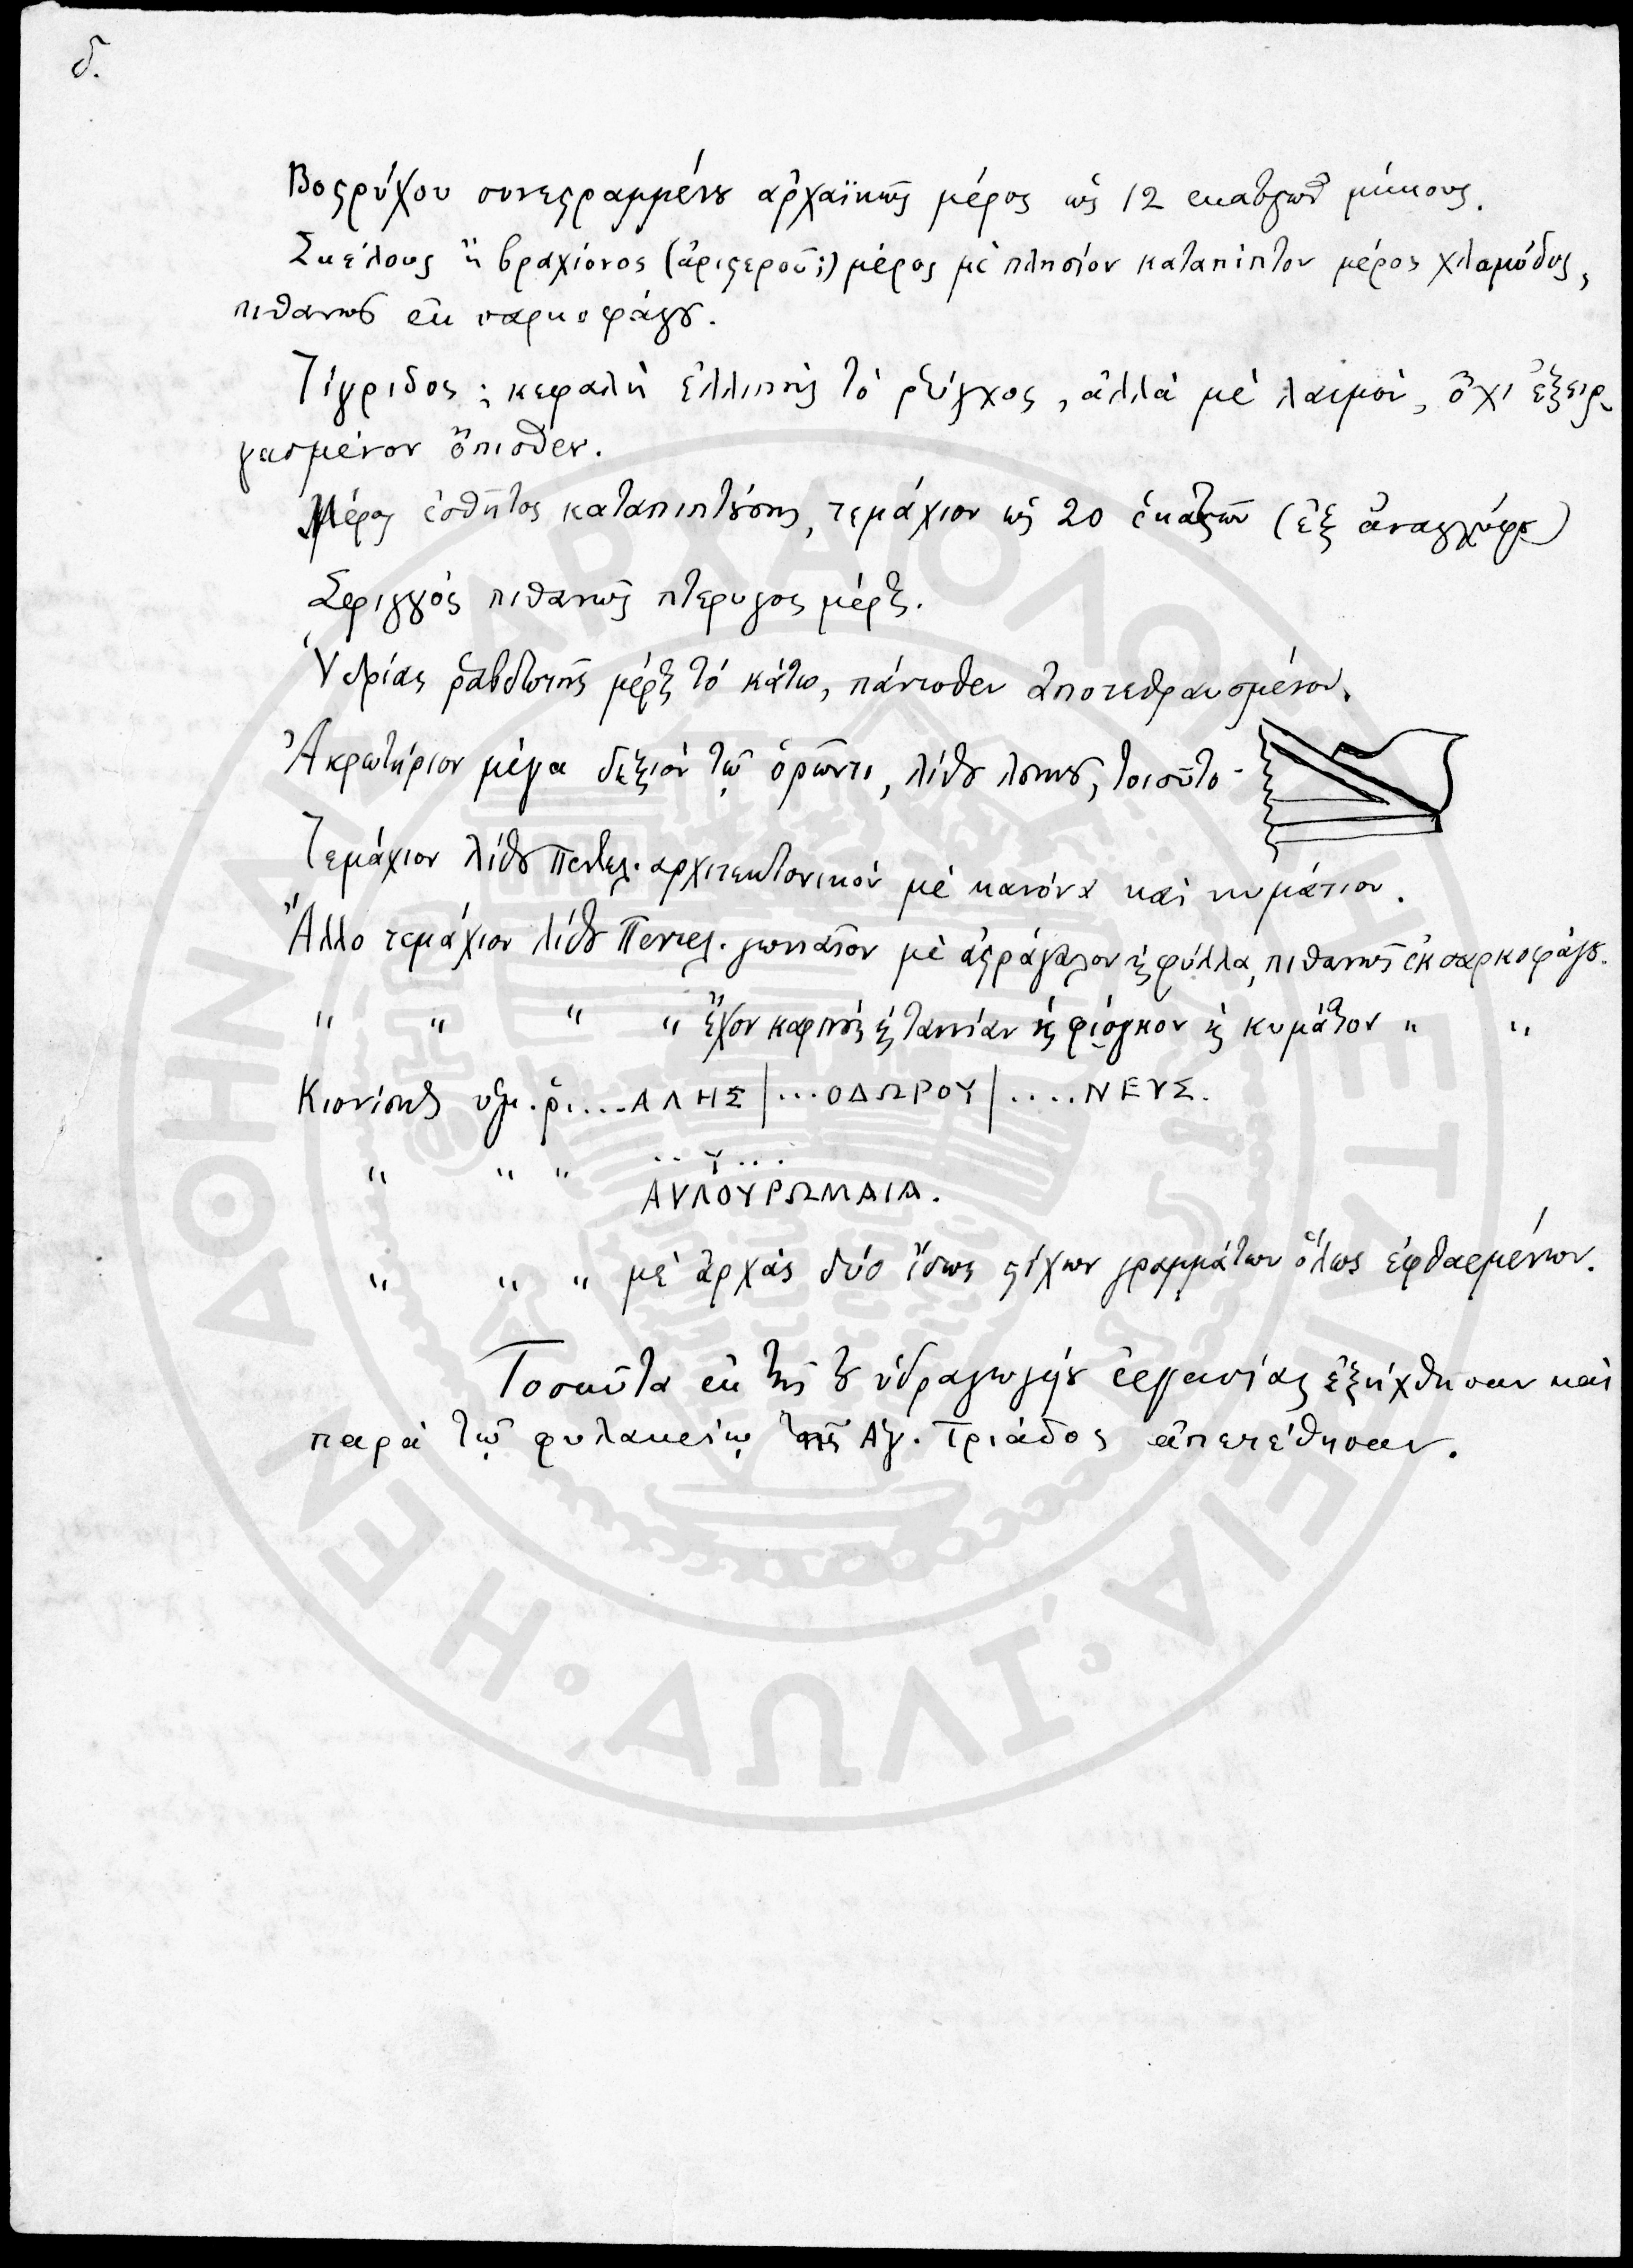 δ.
Βοςρύχου συνεςραμμένȣ ἀρχαϊκῶς μέρος ὡς 12 ἑκατςῶν μήκους.
Σκέλους ἢ βραχίονος (ἀριςεροῦ;) μέρος μὲ πλησίον καταπίπτον μέρος χλαμύδος,
πιθανῶς ἐκ σαρκοφάγȣ.
Τίγριδος; κεφαλὴ ἐλλιπὴς τὸ ῥύγχος, ἀλλὰ μὲ λαιμὸν, ὄχι ἐξειρ-
γασμένον ὄπισθεν.
Μέρος ἐσθῆτος καταπιπτȣ́σης, τεμάχιον ὡς 20 ἑκατςῶν (ἐξ ἀναγλύφȣ)
Σφιγγὸς πιθανῶς πτέρυγος μέρος.
Ὑδρίας ῥαβδωτῆς μέρος τὸ κάτω, πάντοθεν ἀποτεθραυσμένον.
Ἀκρωτήριον μέγα δεξιὸν τῷ ὁρῶντι, λίθȣ λευκȣ͂, τοιοῦτο -
Τεμάχιον λίθȣ Πεντελ. ἀρχιτεκτονικὸν μὲ κανόνα καὶ κυμάτιον.
Ἄλλο τεμάχιον λίθȣ Πεντελ. γωνιαῖον μὲ ἀςράγαλον ϗ φύλλα, πιθανῶς ἐκ σαρκοφάγȣ.
" " " " ἔχον καρποὺς ϗ ταινίαν ϗ φιόγκον ϗ κυμάτιον " "
Κιονίσκος ὑμ. ῥ. ....ΑΛΗΣ|...ΟΔΩΡΟΥ|....ΝΕΥΣ.
" " " ..Υ...
ΑΥΛΟΥΡΩΜΑΙΑ.
" " " μὲ ἀρχὰς δύο ἴσως ςίχων γραμμάτων ὅλως ἐφθαρμένων.
Τοσαῦτα ἐκ τῆς τȣ͂ ὑδραγωγείȣ ἐργασίας ἐξήχθησαν καὶ
παρὰ τῷ φυλακείῳ τῆς Ἁγ. Τριάδος ἀπετέθησαν.
Η ΕΝ ΑΘΗΝΑΙΣ ΑΡΧΑΙΟΛΟΓΙΚΗ ΕΤΑΙΡΕΙΑ